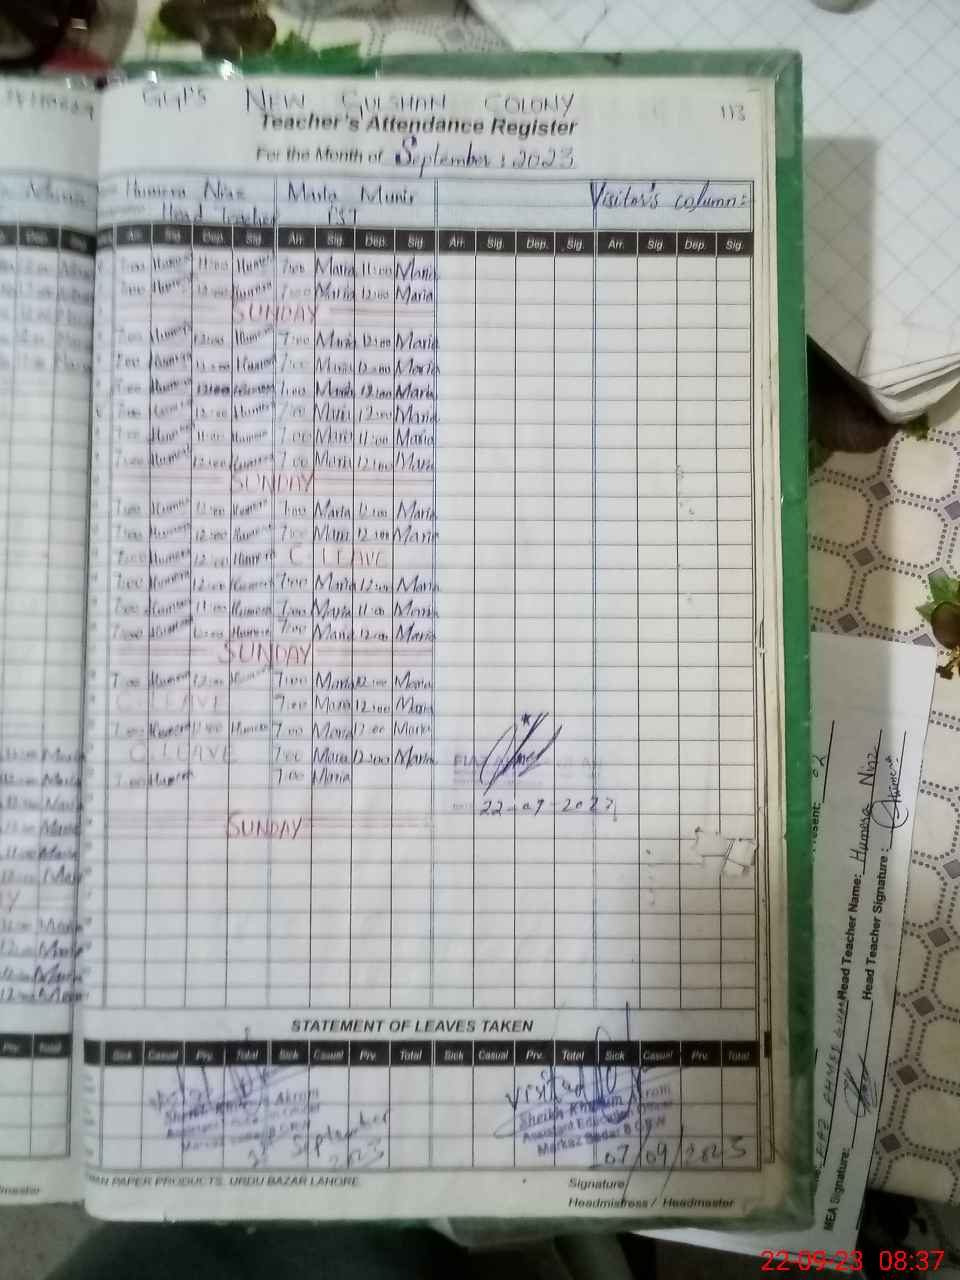 GGPS NEW GULSHAN COLONY 113
Teacher's Attendance Register
For the Month of September : 2023
Humera Niaz Maria Munir Visitor's column:
Head Teacher PST
Arr. Sig. Dep. Sig. Arr. Sig. Dep. Sig. Arr. Sig. Dep. Sig. Arr. Sig. Dep. Sig.
7:00 Humera 11:00 Humera 7:00 Maria 11:00 Maria
7:00 Humera 12:00 Humera 7:00 Maria 12:00 Maria
SUNDAY
7:00 Humera 12:00 Humera 7:00 Maria 12:00 Maria
7:00 Humera 12:00 Humera 7:00 Maria 12:00 Maria
7:00 Humera 12:00 Humera 7:00 Maria 12:00 Maria
7:00 Humera 12:00 Humera 7:00 Maria 12:00 Maria
7:00 Humera 11:00 Humera 7:00 Maria 11:00 Maria
7:00 Humera 12:00 Humera 7:00 Maria 12:00 Maria
SUNDAY
7:00 Humera 12:00 Humera 7:00 Maria 12:00 Maria
7:00 Humera 12:00 Humera 7:00 Maria 12:00 Maria
7:00 Humera 12:00 Humera C. LEAVE
7:00 Humera 12:00 Humera 7:00 Maria 12:00 Maria
7:00 Humera 11:00 Humera 7:00 Maria 11:00 Maria
7:00 Humera 12:00 Humera 7:00 Maria 12:00 Maria
SUNDAY
7:00 Humera 12:00 Humera 7:00 Maria 12:00 Maria
C. LEAVE 7:00 Maria 12:00 Maria
7:00 Humera 12:00 Humera 7:00 Maria 12:00 Maria
C. LEAVE 7:00 Maria 12:00 Maria
7:00 Humera 7:00 Maria
22-09-2023
SUNDAY
STATEMENT OF LEAVES TAKEN
Sick Casual Prv. Total Sick Casual Prv. Total Sick Casual Prv. Total Sick Casual Prv. Total
Akram
visited
Assistant Education Officer
Markaz Sadar
September
2023
07/09/2023
PAPER PRODUCTS. URDU BAZAR LAHORE
Signature
Headmistress / Headmaster
Head Teacher Name: Humera Niaz
Head Teacher Signature: Humera
MEA Signature:
22-09-23 08:37